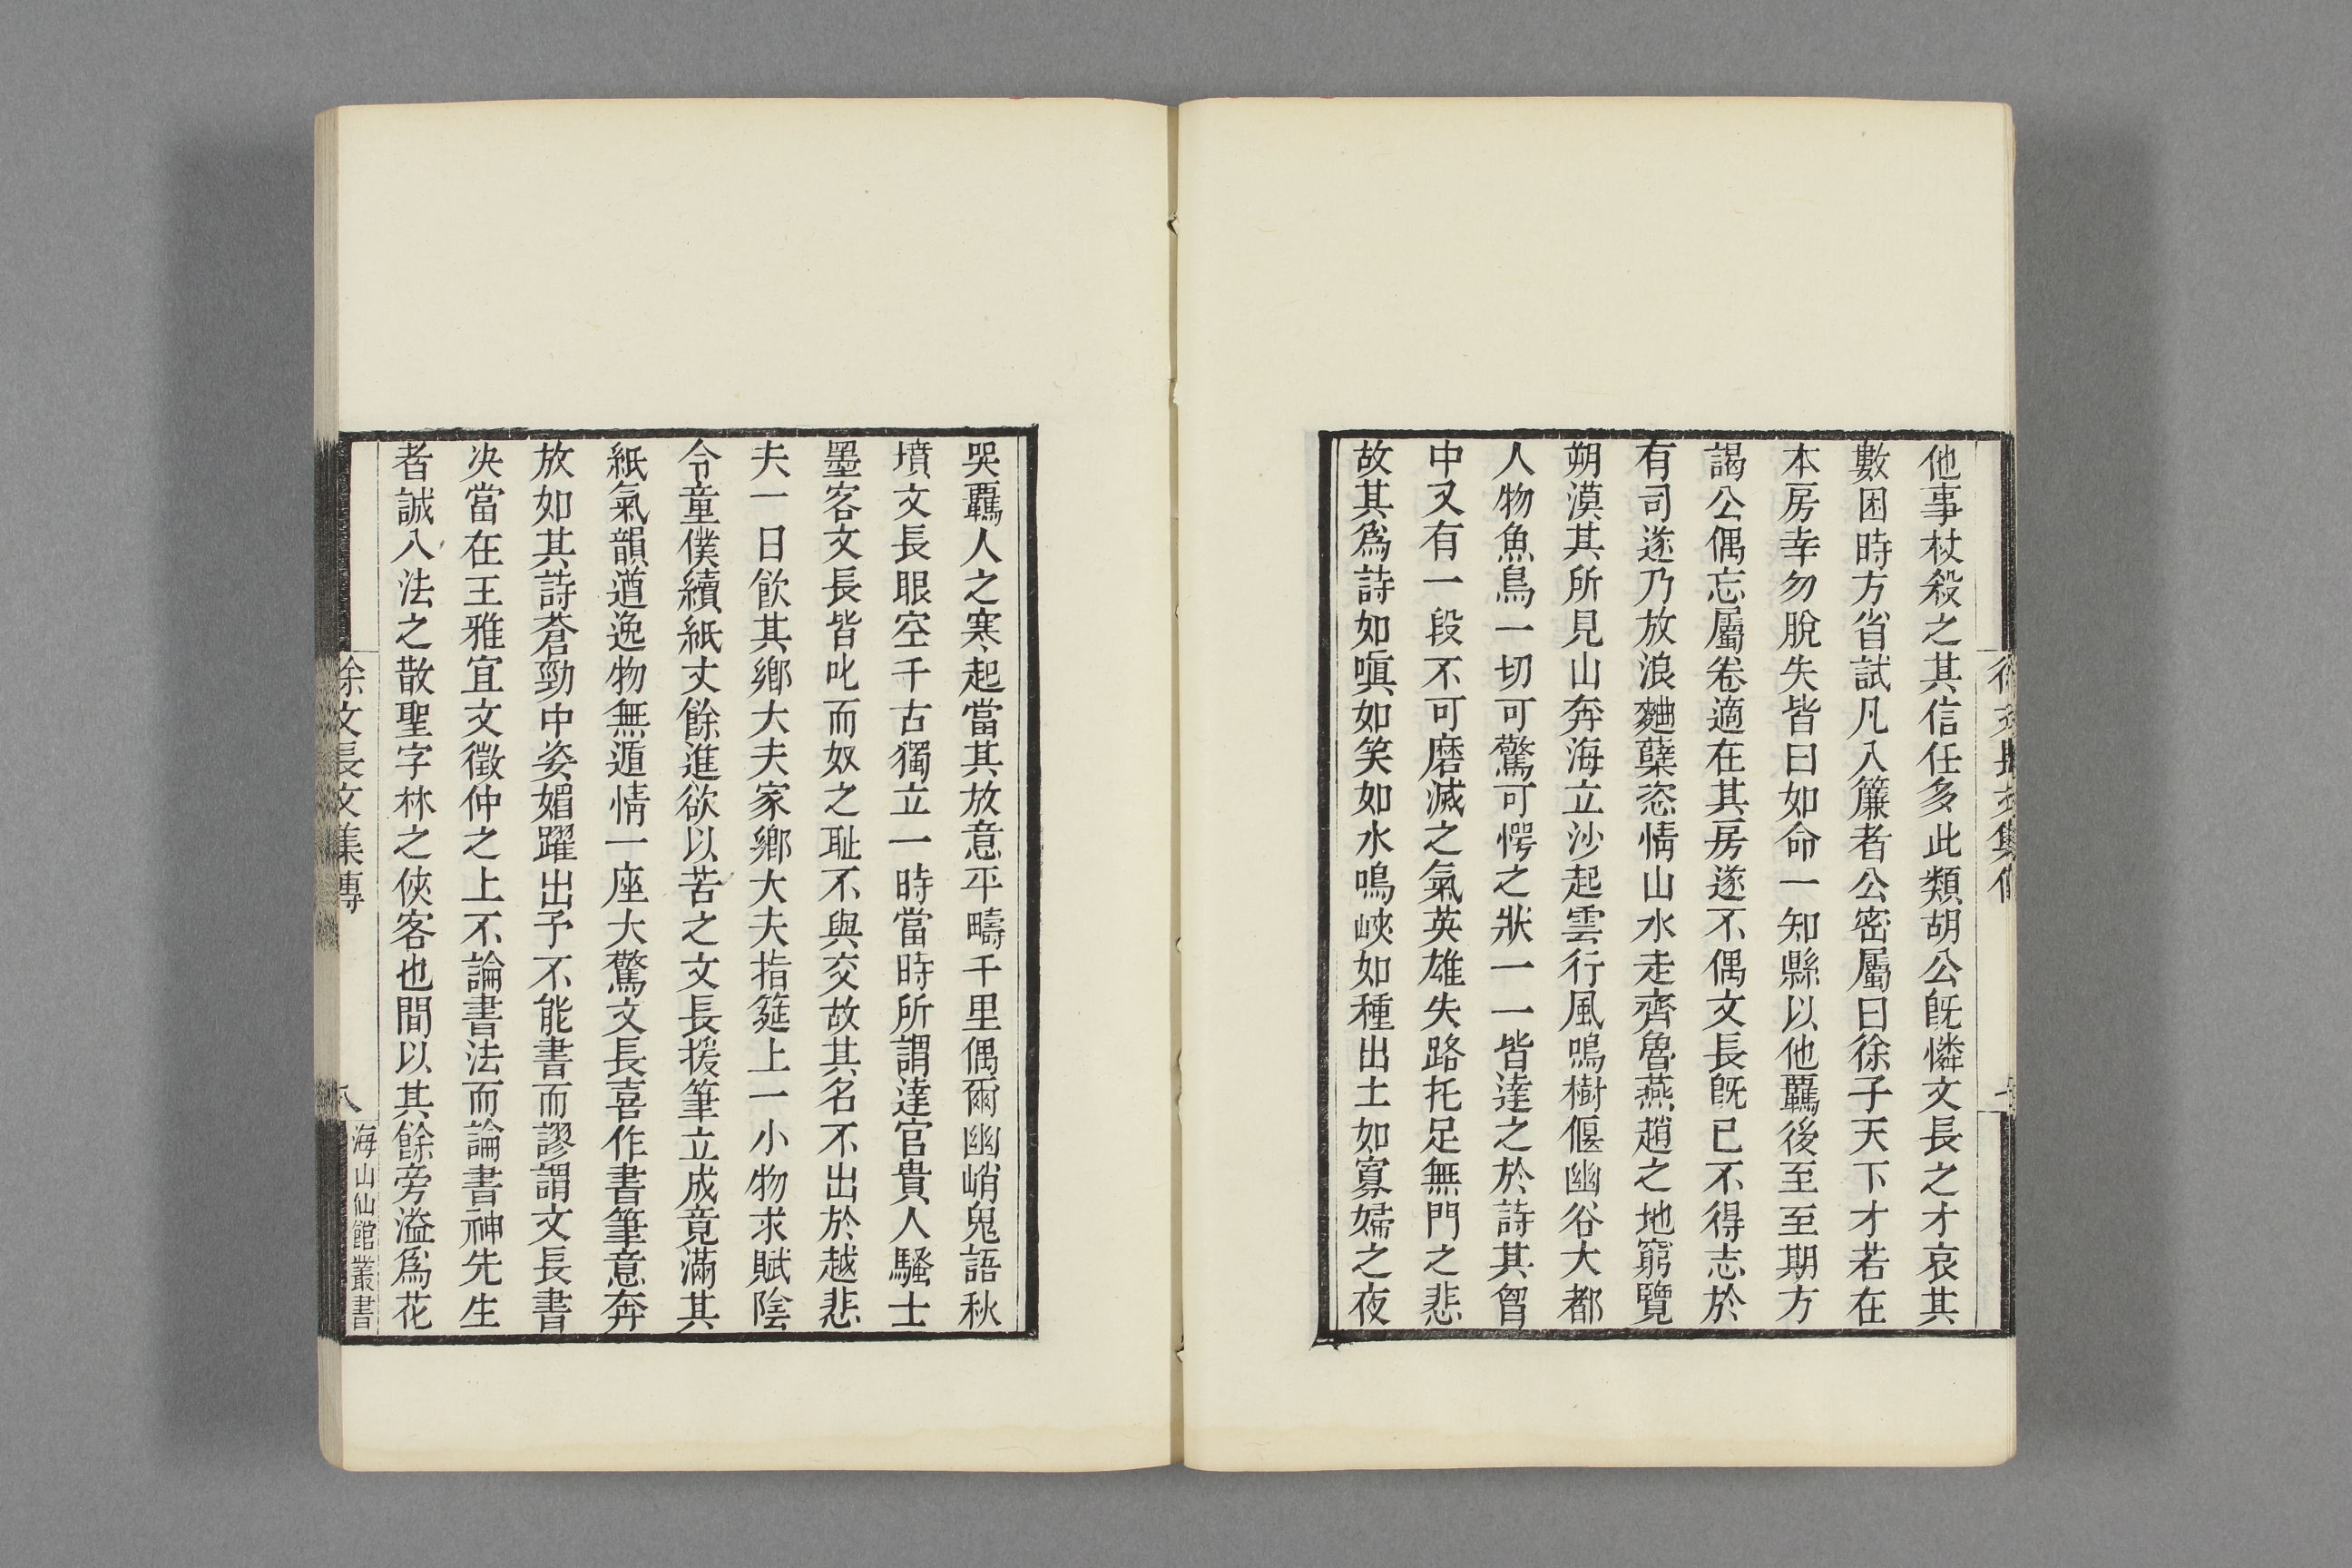 他事杖殺之其信任多此類胡公旣憐文長之才哀其
數困時方省試凡入簾者公密屬曰徐子天下才若在
本房幸勿脫失皆曰如命一知縣以他羈後至至期方
謁公偶忘屬卷適在其房遂不偶文長旣已不得志於
有司遂乃放浪麯糵恣情山水走齊魯燕趙之地窮覽
朔漠其所見山奔海立沙起雲行風鳴樹偃幽谷大都
人物魚鳥一切可驚可愕之狀一一皆達之於詩其胷
中又有一段不可磨滅之氣英雄失路托足無門之悲
故其爲詩如嗔如笑如水鳴峽如種出土如寡婦之夜
哭羈人之寒起當其放意平疇千里偶爾幽峭鬼語秋
墳文長眼空千古獨立一時當時所謂達官貴人騷士
墨客文長皆叱而奴之耻不與交故其名不出於越悲
夫一日飲其鄉大夫家鄉大夫指筵上一小物求賦陰
令童僕續紙丈餘進欲以苦之文長援筆立成竟滿其
紙氣韻遒逸物無遁情一座大驚文長喜作書筆意奔
放如其詩蒼勁中姿媚躍出予不能書而謬謂文長書
决當在王雅宜文徵仲之上不論書法而論書神先生
者誠八法之散聖字林之俠客也間以其餘旁溢爲花
徐文長文集傳
海山仙館叢書